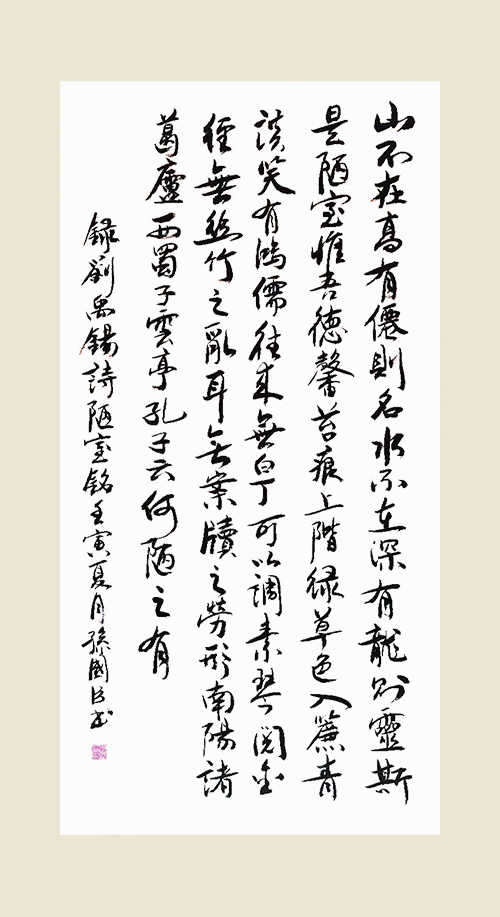 山不在高有僊則名水不在深有龍則靈斯
是陋室惟吾德馨苔痕上階緑草色入簾青
談笑有鴻儒往來無白丁可以調素琴閱金
經無絲竹之亂耳無案牘之勞形南陽諸
葛廬西蜀子雲亭孔子云何陋之有
録劉禹錫詩陋室銘壬寅夏月孫國书